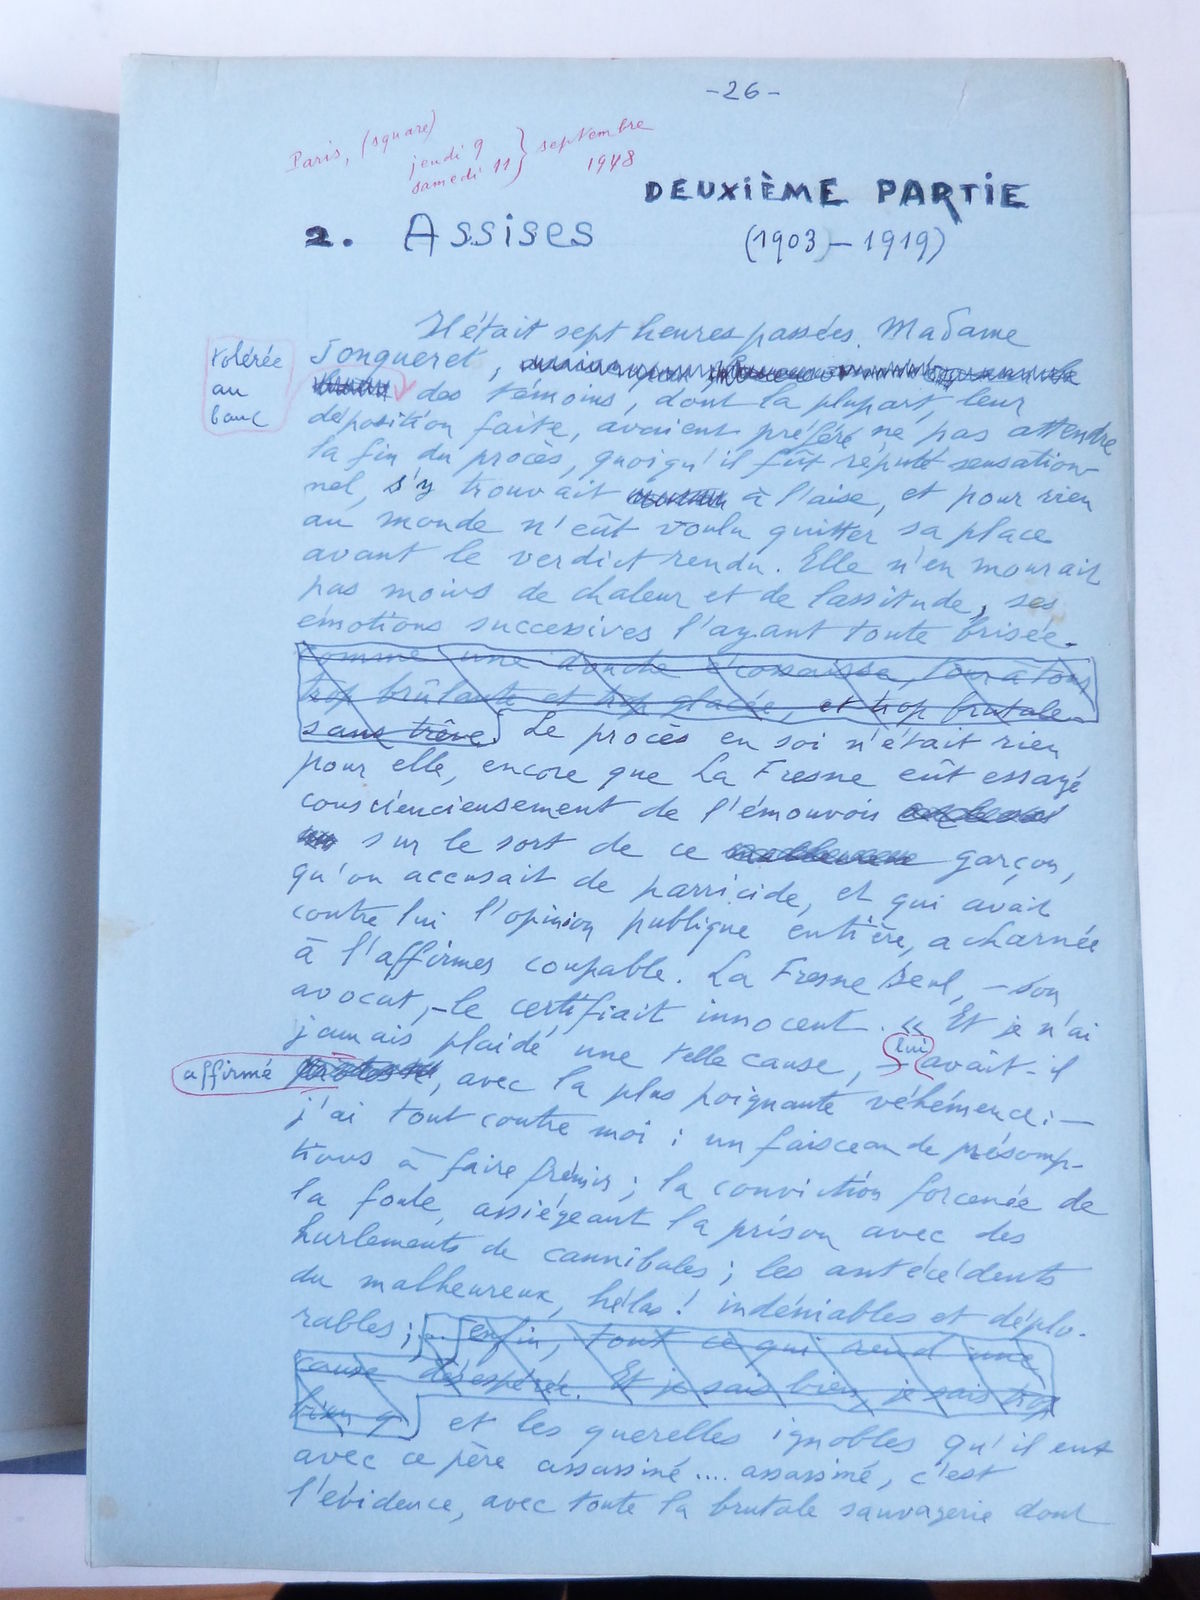 -26-
Paris, (square)
jeudi 9
samedi 11 } septembre
1948
DEUXIÈME PARTIE
2. Assises
(1903) - 1919)
Il était sept heures passées. Madame
Jonqueret,
tolérée
au
banc
des témoins, dont la plupart, leur
déposition faite, avaient préféré ne pas attendre
la fin du procès, quoiqu'il fût réputé sensation-
nel, s'y trouvait à l'aise, et pour rien
au monde n'eût voulu quitter sa place
avant le verdict rendu. Elle n'en mourait
pas moins de chaleur et de lassitude, ses
émotions successives l'ayant toute brisée.
comme une douche écossaise, tour à tour
trop brûlante et trop glacée, et trop brutale
sans trêve. Le procès en soi n'était rien
pour elle, encore que La Fresne eût essayé
consciencieusement de l'émouvoir
sur le sort de ce garçon,
qu'on accusait de parricide, et qui avait
contre lui l'opinion publique entière, acharnée
à l'affirmer coupable. La Fresne seul, - son
avocat, - le certifiait innocent. « Et je n'ai
jamais plaidé une telle cause, - lui avait-il
affirmé, avec la plus poignante véhémence : -
j'ai tout contre moi : un faisceau de présomp-
tions à faire frémir ; la conviction forcenée de
la foule, assiégeant la prison avec des
hurlements de cannibales ; les antécédents
du malheureux, hélas ! indéniables et déplo-
rables ; enfin, tout ce qui rend une
cause désespérée. Et je sais bien, je sais trop
bien q et les querelles ignobles qu'il eut
avec ce père assassiné .... assassiné, c'est
l'évidence, avec toute la brutale sauvagerie dont